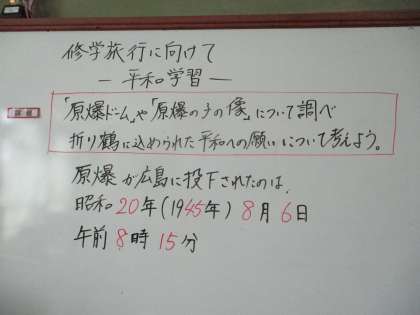 修学旅行に向けて
― 平和学習 ―
課題
「原爆ドーム」や「原爆の子の像」について調べ
折り鶴に込められた平和への願いについて考えよう。
原爆が広島に投下されたのは、
昭和20年(1945年)8月6日
午前8時15分